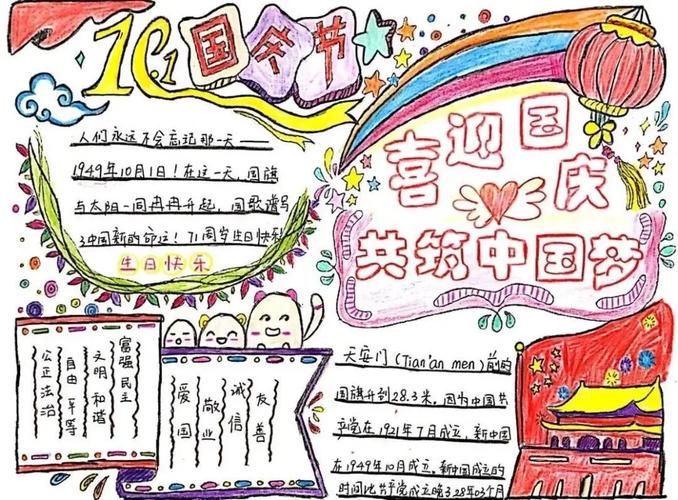 10.1国庆节
人们永远不会忘记那一天——
1949年10月1日!在这一天,国旗
与太阳一同冉冉升起,国歌谱写
了中国新的命运!71周岁生日快乐
生日快乐
喜迎国庆
共筑中国梦
富强 民主
文明 和谐
自由 平等
公正法治
爱国
敬业
诚信
友善
天安门(Tian'an men)前的
国旗升到28.3米,因为中国共
产党在1921年7月成立,新中国
在1949年10月成立,新中国成立的
时间比共产党成立晚了28年03个月